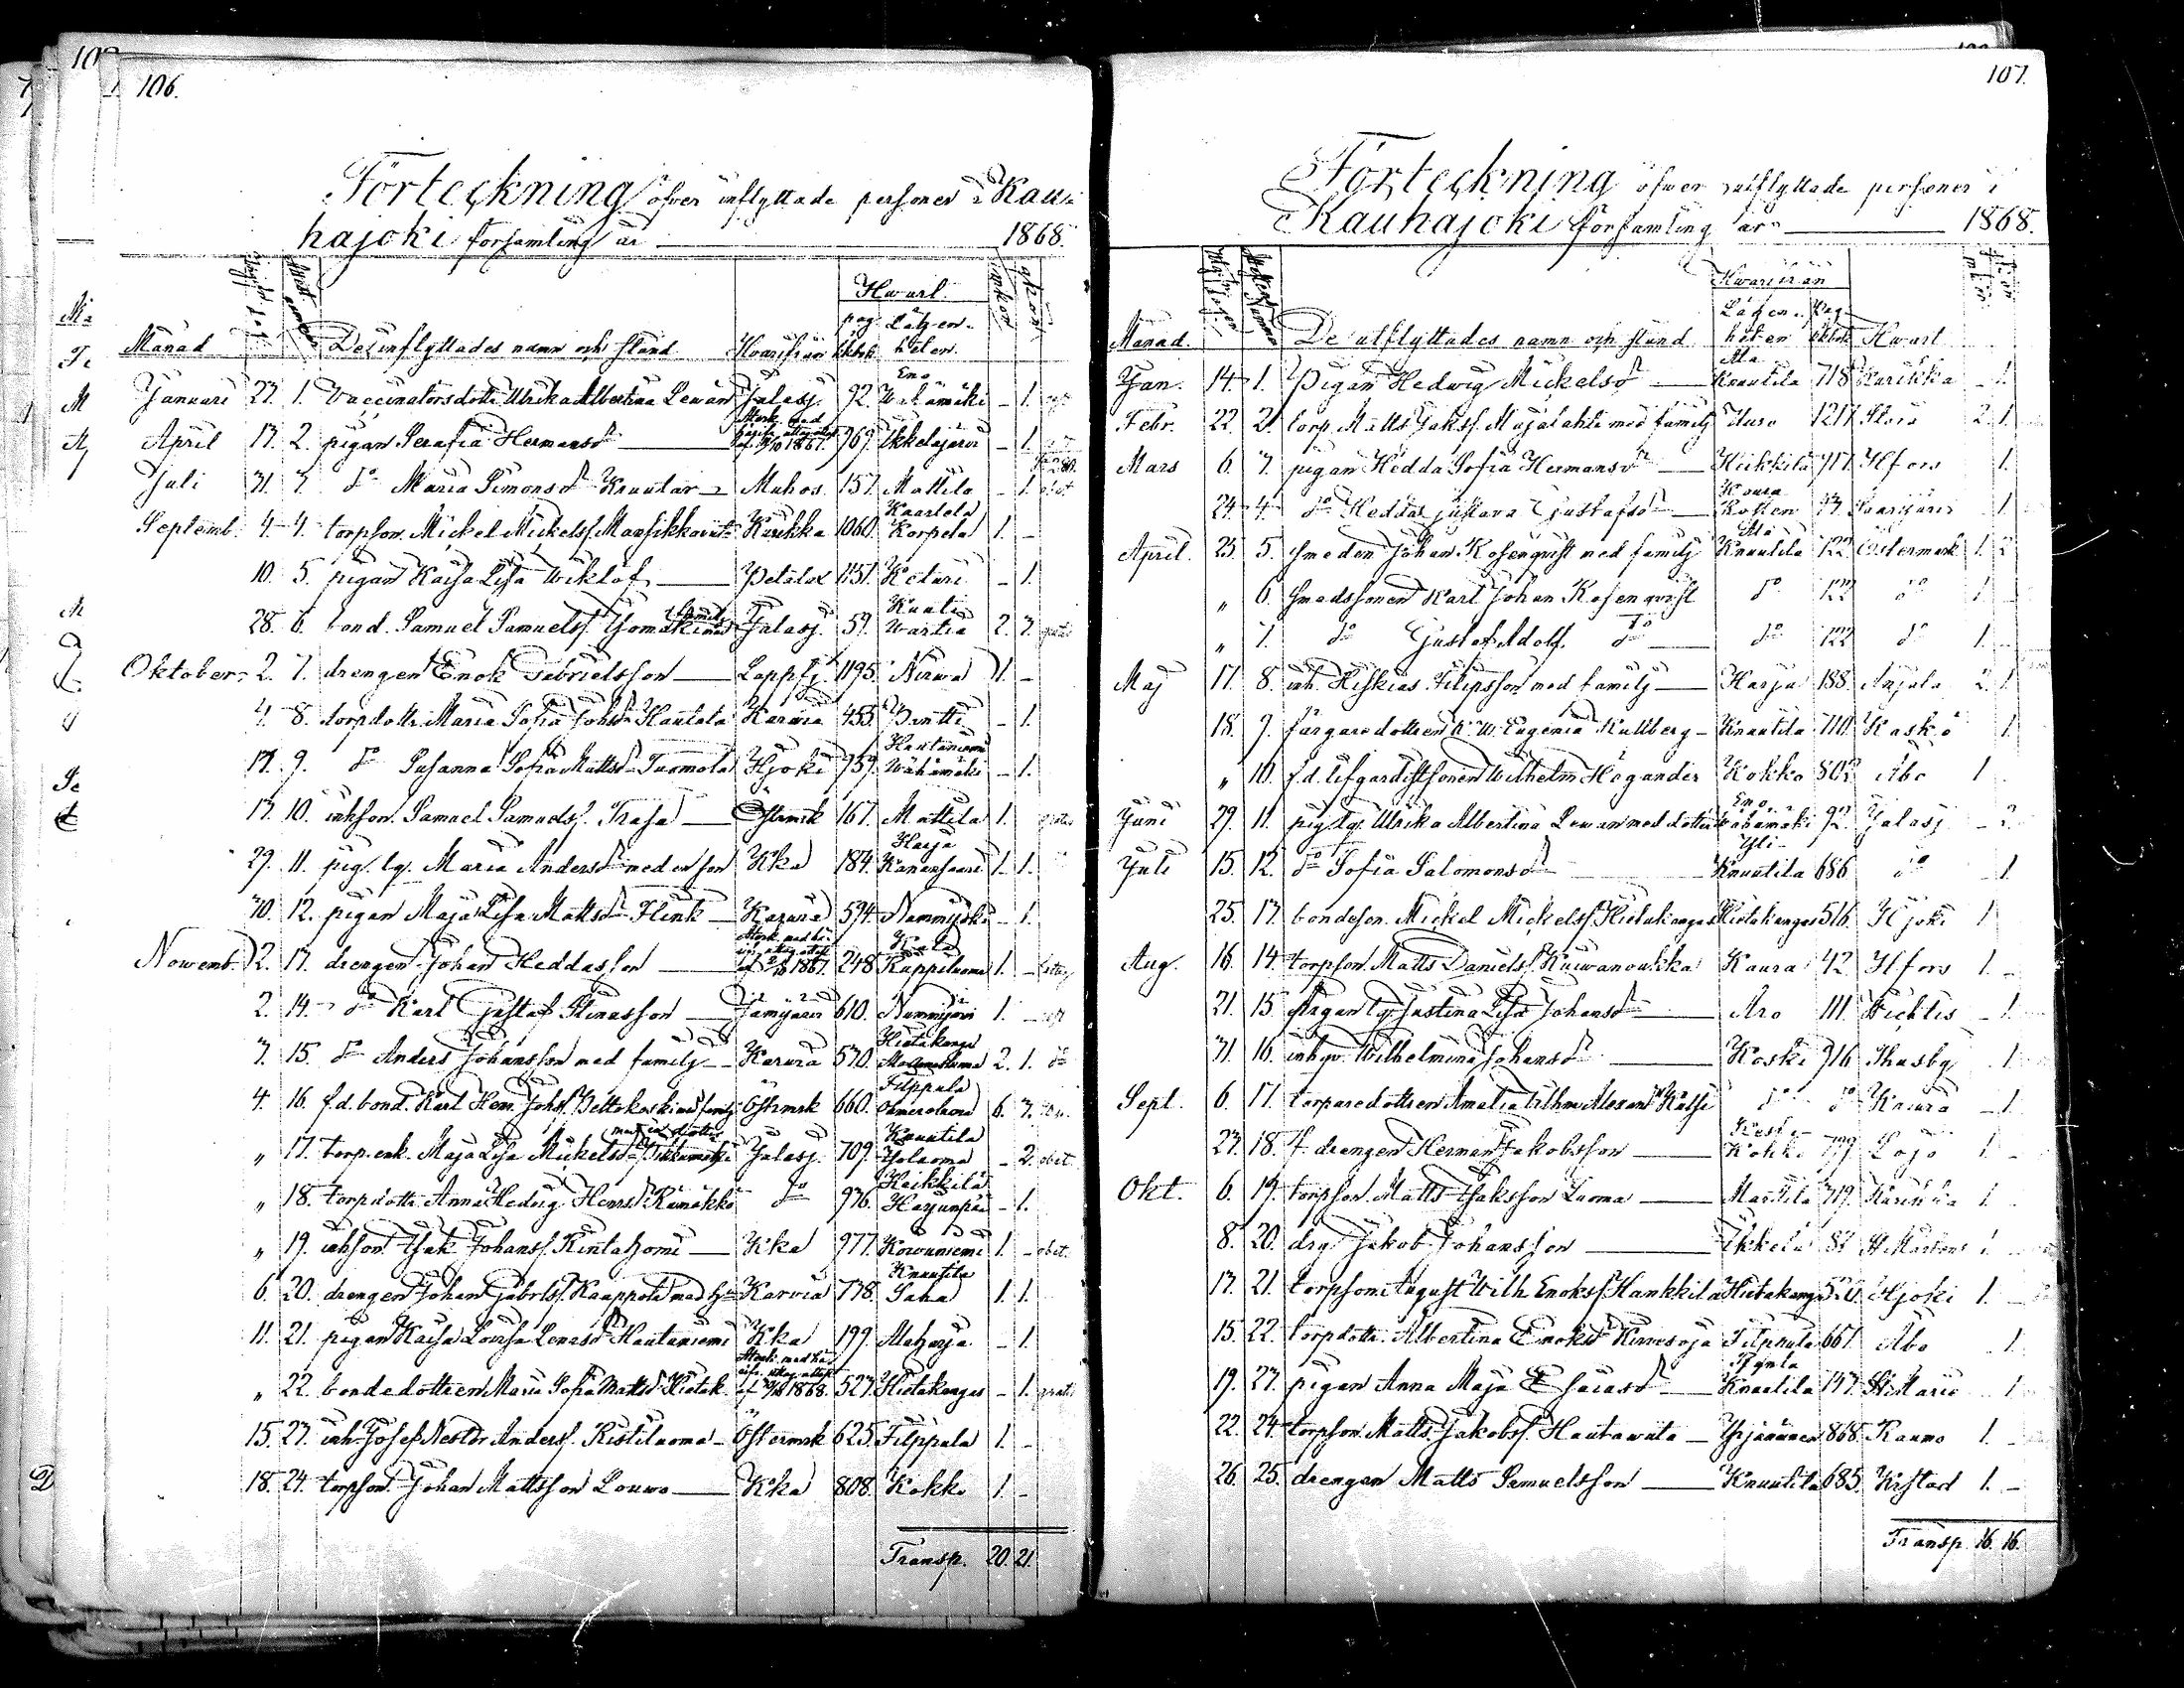 106.
Förteckning öfver inflyttade personer i Kau-
hajoki församling år 1868.
Månad De inflyttades namn och stånd Hvarifrån Hwart pag. Lägen- heten
Januari 23. 1. Vaccinatorsdottr Ulrika Albertina Lewan Jalasj. 92. Eno Wähämäki - 1.
April 13. 2. pigan Serafia Hermansdr 1867. 769. Ikkeläjärvi - 1.
Juli 31. 3. do Maria Simonsdr Knuutar Muhos 157. Mattila - 1. obet
Septemb. 4. 4. torpson. Mickel Mickelss. Mansikka Kurikka 1060. Kaarlela Korpela 1. -
10. 5. pigan Kaisa Lisa Wiklöf Petalax 1151. Ketari - 1.
28. 6. bond. Samuel Samuelss. familj Jalasj. 59. Knuuti Wartia 2. 3.
Oktober 2. 7. drengen Enok Gabrielsson Lappfj. 1195. Nirwa 1. -
4. 8. torpdottr. Maria Sofia Johsdr Hautala Karvia 455. Pentti - 1.
13. 9. do Susanna Sofia Mattsdr Turmola Hjoki 759. Hautaniemi Wähämäki - 1.
13. 10. inhson. Samuel Samuelss. Trasa Östermrk 167. Mattila 1.
29. 11. pig. lg. Maria Andersdr med en son Kka 184. Harja 1. 1.
30. 12. pigan Maja Lisa Mattsdr Flink Karvia 594. Nummijärvi - 1.
Novemb. 2. 13. drengen Johan Heddasson 1867. 248. Rappeluoma 1. -
2. 14. do Karl Gustaf Stinasson Jämijärvi 610. Nummijärvi 1. -
3. 15. do Anders Johansson med familj Karvia 530. Hietakangas 2. 1. do
4. 16. f.d. bond. Karl Henr. Johss. Peltokoski med familj Östermrk 660. Filppula 6. 3.
" 17. torp.enk. Maja Lisa Mickelsdr med en dotter Jalasj. 709. Knuutila Yloluoma - 2. obet
" 18. torpdottr. Anna Hedvig Henrsdr do 976. Heikkilä Harjunpää - 1.
" 19. inhson. Isak Johanss. Rintahomi Kka 977. Koivuniemi 1. - obet
6. 20. drengen Johan Gabrlss. Kaappola med h. Karvia 738. Knuutila Saha 1. 1.
11. 21. pigan Kaisa Lovisa Henrsdr Hautaniemi Kka 199. Alaharja - 1.
" 22. bondedottren Maria Sofia Mattsdr Hietak. 1868. 527. Hietakangas - 1. gratis
15. 23. inh. Josef Nestor Anderss. Ristiluoma Östermrk 625. Filppula 1. -
18. 24. torpson. Johan Mattsson Louwo Kka 808. Kokko 1. -
Transp. 20. 21.
107.
Förteckning öfver utflyttade personer i
Kauhajoki församling år 1868.
Månad. De utflyttades namn och stånd Hvarifrån Lägen- heten Pag. Hwart
Jan. 14. 1. Pigan Hedwig Mickelsdr Ala Knuutila 718 Kurikka - 1.
Febr. 22. 2. torp. Matts Jakss. Majalahti med familj Yuso 1217. Storå 2. 1.
Mars 6. 3. pigan Hedda Sofia Hermansdr Heikkilä 717. Hfors 1.
24. 4. do Hedda Gustava Gustafsdr Koura Saarijärvi 1.
April. 25. 5. smeden Johan Rosenqvist med familj Ala Knuutila 122 Östermark 1. 2.
" 6. smedssonen Karl Johan Rosenqvist do 122 do 1.
" 7. do Gustaf Adolf do do 122 do 1.
Maj 17. 8. inh. Hiskias Filipsson med familj Harja 188. Anjala 2. 1.
18. 9. färgaredottren K. W. Eugenia Kullberg Knuutila 710. Kaskö 1.
" 10. f.d. lifgardistssonen Wilhelm Högander Kokko 802 Åbo 1
Juni 29. 11. pig. lg. Ulrika Albertina Lewan med dotter Eno Wähämäki 92. Jalasj - 2.
Juli 15. 12. do Sofia Salomonsdr Yli- Knuutila 686 do - 1.
25. 13. bondeson. Mickel Mickelss. Hietakangas Hietakangas 516. Hjoki 1
Aug. 16. 14. torpson. Matts Danielss. Kuivanoukka Koura 42. Hfors 1. -
21. 15. pigan lg. Justina Lisa Johansdr Aro 111. Wichtis - 1.
31. 16. inhqv. Wilhelmina Johansdr Koski 716 Thusby 1.
Sept. 6. 17. torparedottren Amalia Wilhma Alexandra Kalfi do do Knura - 1.
23. 18. f. drengen Herman Jakobsson Lojo 1. -
Okt. 6. 19. torpson. Matts Isaksson Luoma Mattila 719. Kurikka 1.
8. 20. drg. Jakob Johansson Ikkelä 82 St Mårtens 1.
13. 21. torpson. August Wilh Enokss. Hankkila Hietakangas Hjoki 1. -
15. 22. torpdottr. Albertina Enoksdr Kiwioja Filppula 667. Åbo 1.
19. 23. pigan Anna Maja Esaiasdr Knuutila 147. St Marie 1
22. 24. torpson. Matts Jakobss. Hautawiita 868. Raumo 1. -
26. 25. drengen Matts Samuelsson Knuutila 685. Kristad 1. -
Transp. 16. 16.